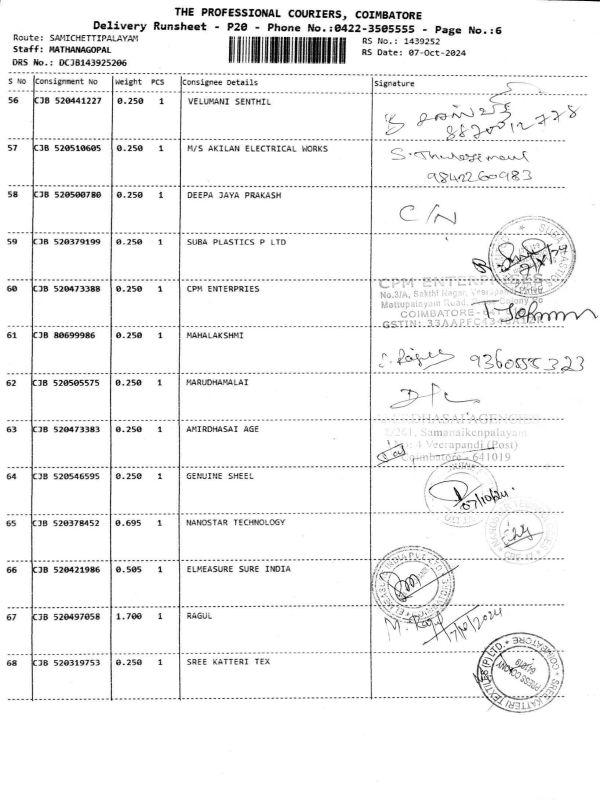 THE PROFESSIONAL COURIERS, COIMBATORE
Delivery Runsheet - P20 - Phone No.:0422-3505555 - Page No.:6
Route: SAMICHETTIPALAYAM
RS No.: 1439252
Staff: MATHANAGOPAL
RS Date: 07-Oct-2024
DRS No.: DCJB143925206
S No Consignment No Weight PCS Consignee Details Signature
56 CJB 520441227 0.250 1 VELUMANI SENTHIL
8870012778
57 CJB 520510605 0.250 1 M/S AKILAN ELECTRICAL WORKS
9842260983
58 CJB 520500780 0.250 1 DEEPA JAYA PRAKASH
C/N
59 CJB 520379199 0.250 1 SUBA PLASTICS P LTD
60 CJB 520473388 0.250 1 CPM ENTERPRIES
CPM ENTERPRISES
No.3/A, Sakthi Nagar,
Mettupalayam Road,
COIMBATORE-
GSTIN:
61 CJB 80699986 0.250 1 MAHALAKSHMI
9360558323
62 CJB 520505575 0.250 1 MARUDHAMALAI
63 CJB 520473383 0.250 1 AMIRDHASAI AGE
DHASAI AGENCIES
Samanaikenpalayam
No: 4 Veerapandi (Post)
Coimbatore - 641019
64 CJB 520546595 0.250 1 GENUINE SHEEL
07/10/24
65 CJB 520378452 0.695 1 NANOSTAR TECHNOLOGY
66 CJB 520421986 0.505 1 ELMEASURE SURE INDIA
67 CJB 520497058 1.700 1 RAGUL
M. Ragul
7/10/2024
68 CJB 520319753 0.250 1 SREE KATTERI TEX
SREE KATTERI TEXTILES (P) LTD.
COIMBATORE
PRESS COLONY